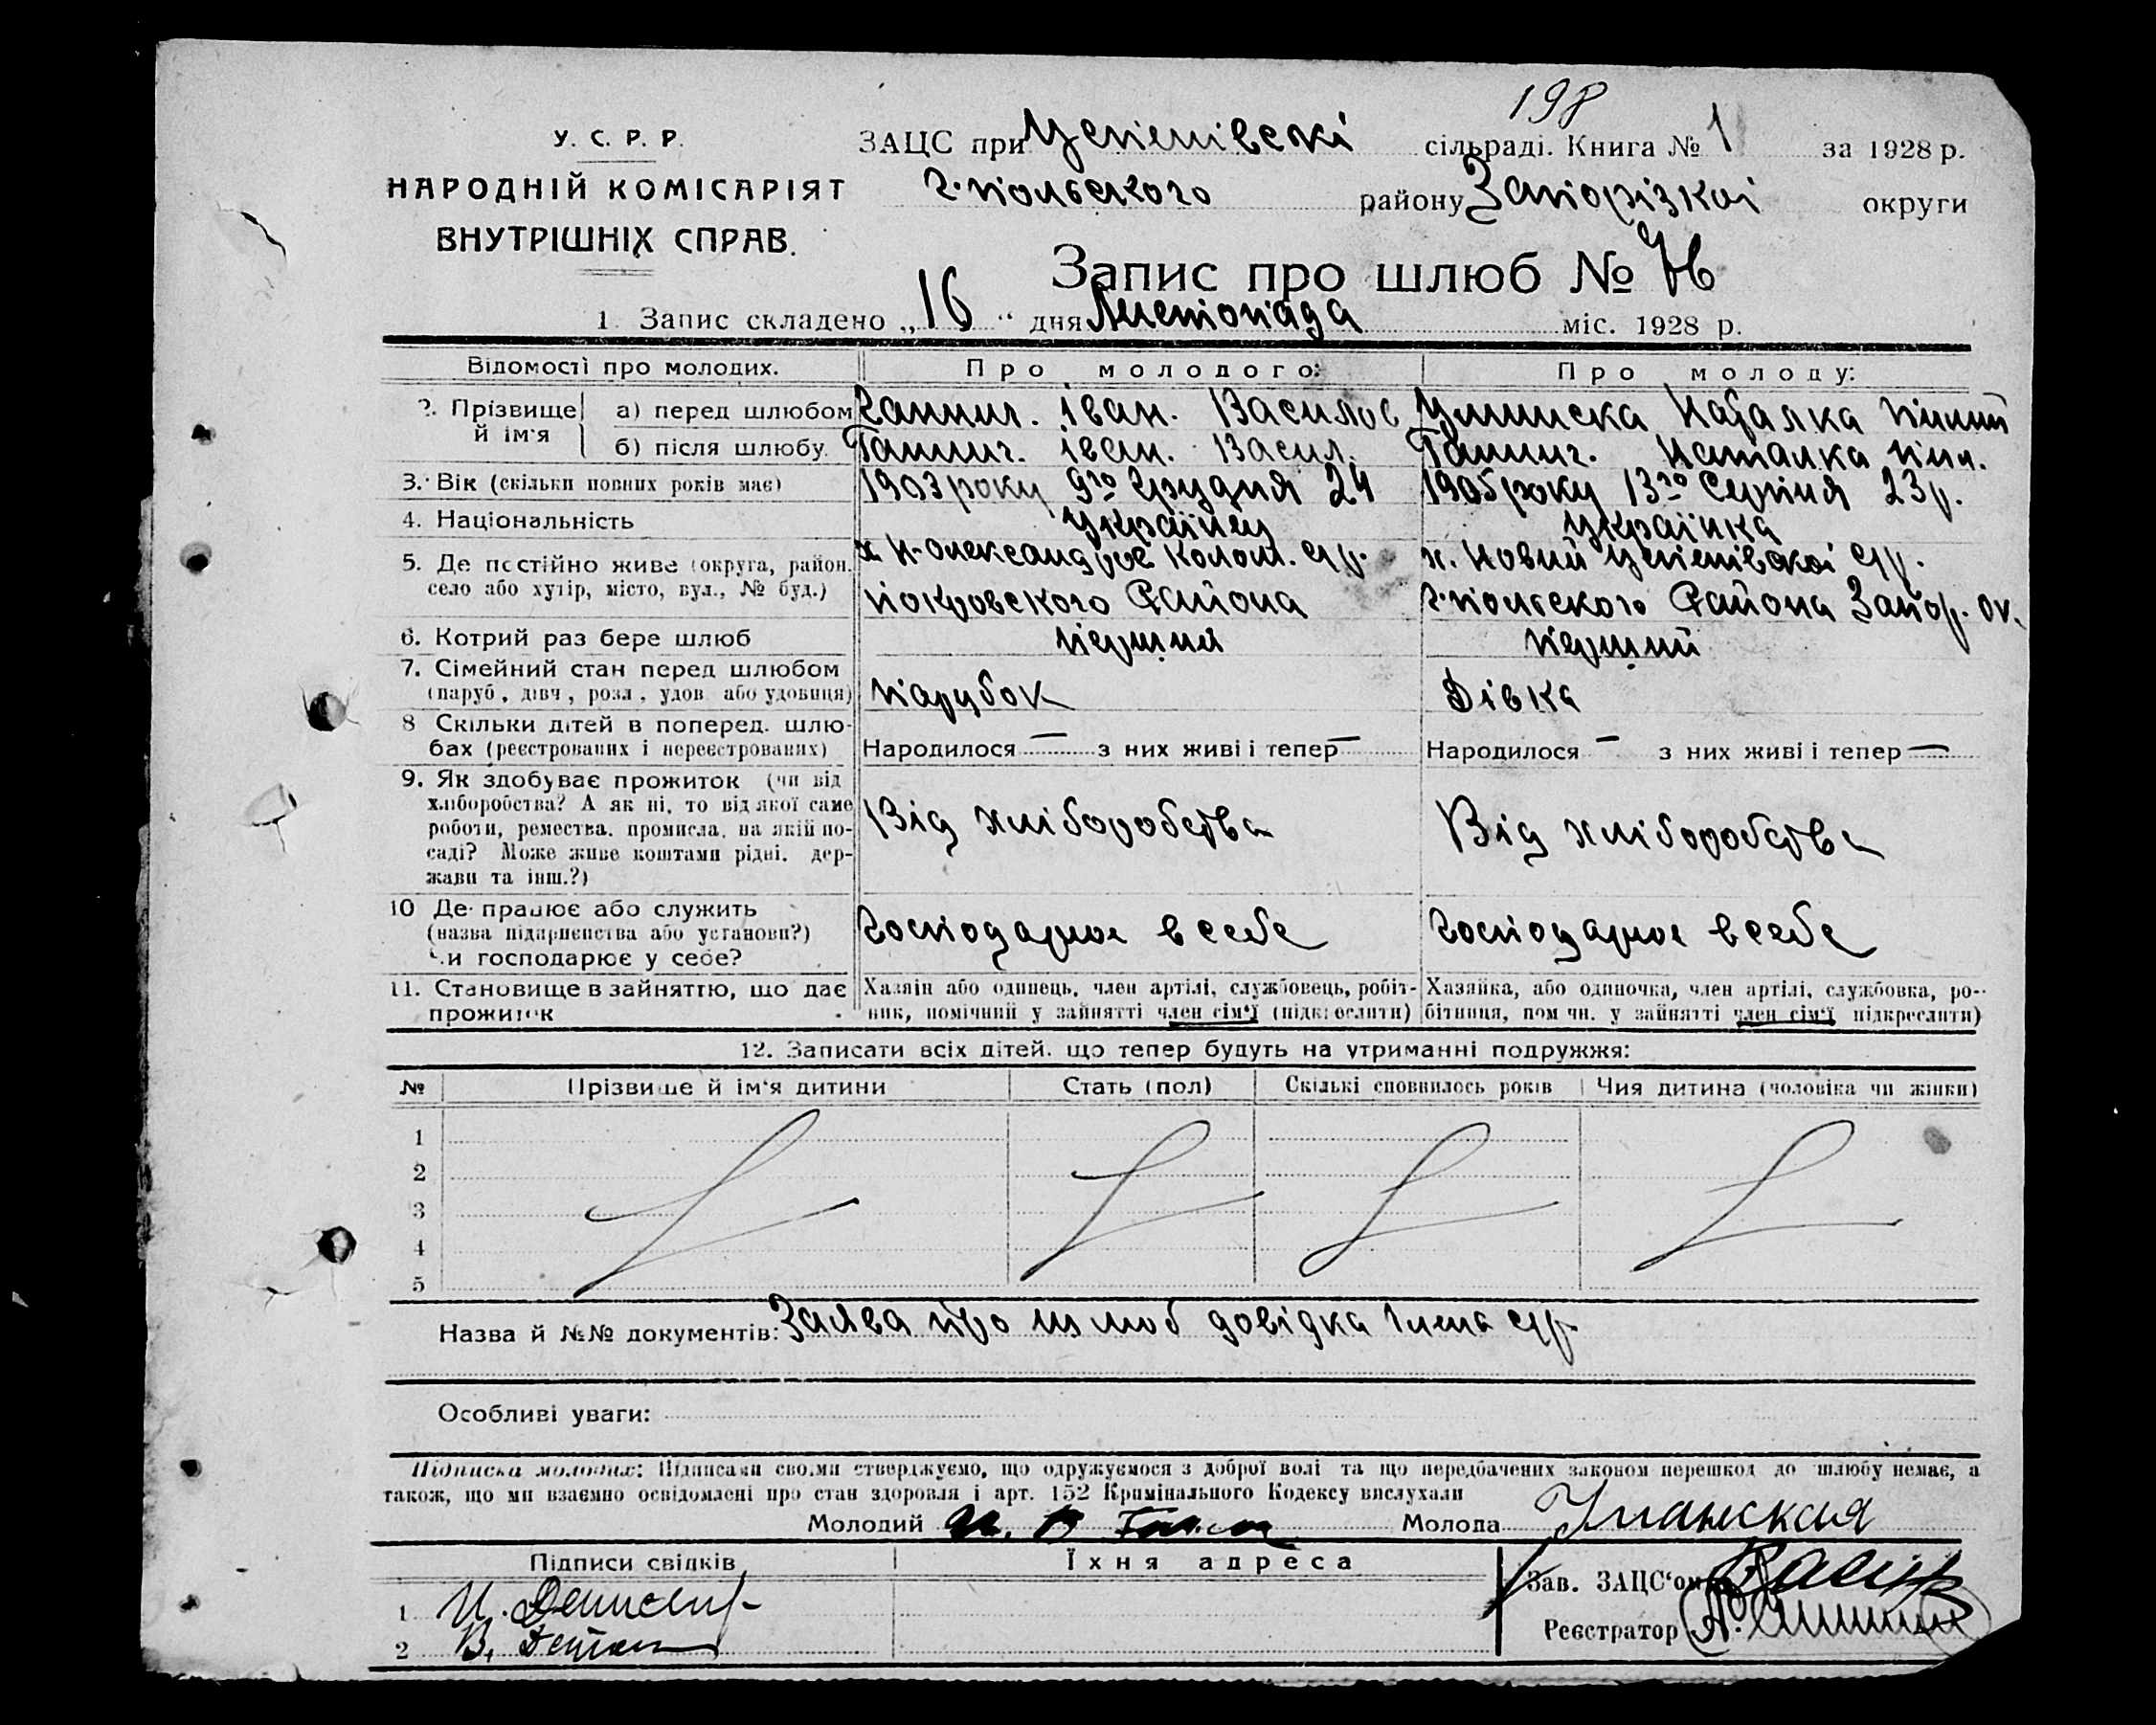 198
У. С. Р. Р.
НАРОДНІЙ КОМІСАРІЯТ
ВНУТРІШНІХ СПРАВ.
ЗАЦС при Успенівскі сільраді. Книга № 1 за 1928 р.
г. польского району Запорізкої округи
Запис про шлюб №
1. Запис складено „16“ дня Листопада міс. 1928 р.
Відомості про молодих. Про молодого: Про молоду:
2. Прізвище й ім'я а) перед шлюбом Іван. Васильов Наталка
б) після шлюбу. Іван. Васил. Наталка
3. Вік (скільки повних років має) 1903 року 9го Грудня 24 1905 року 13го Серпня 23 р.
4. Національність Українец Українка
5. Де постійно живе (округа, район, х Н-Олександров Колом. с/р. х. Новий Успенівскої с/р.
село або хутір, місто, вул., № буд.) Покровского Района г. польского Района Запор. ок.
6. Котрий раз бере шлюб перший перший
7. Сімейний стан перед шлюбом
(паруб., дівч., розл., удов. або удовиця) парубок Дівка
8 Скільки дітей в поперед. шлю-
бах (реєстрованих і нереєстрованих) Народилося — з них живі і тепер — Народилося — з них живі і тепер —
9. Як здобуває прожиток (чи від
хліборобства? А як ні, то від якої саме
роботи, ремества, промисла, на якій по- Від хліборобства Від хліборобства
саді? Може живе коштами рідні, дер-
жави та інш.?)
10 Де працює або служить
(назва підприємства або установи?) Господарює в себе Господарює в себе
Чи господарює у себе?
11. Становище в зайняттю, що дає Хазяїн або одинець, член артілі, службовець, робіт- Хазяйка, або одиночка, член артілі, службовка, ро-
прожиток ник, помічний у зайнятті член сім'ї (підкреслити) бітниця, помічн. у зайнятті член сім'ї підкреслити)
12. Записати всіх дітей, що тепер будуть на утриманні подружжя:
№ Прізвище й ім'я дитини Стать (пол) Скількі сповнилось років Чия дитина (чоловіка чи жінки)
1
2
3
4
5
Назва й №№ документів: Заява про шлюб довідка с/р.
Особливі уваги:
Підписка молодих: Підписами своїми стверджуємо, що одружуємося з доброї волі та що передбачених законом перешкод до шлюбу немає, а
також, що ми взаємно освідомлені про стан здоровля і арт. 152 Кримінального Кодексу вислухали
Молодий Молода
Підписи свідків Їхня адреса
Зав. ЗАЦС'ом
1 И.
Реєстратор
2 В.